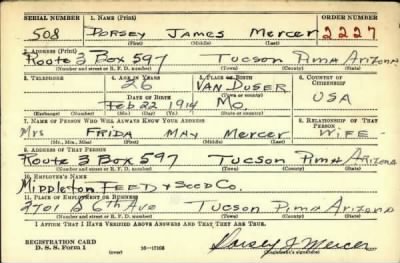 SERIAL NUMBER 1. NAME (Print) ORDER NUMBER
508 DORSEY JAMES MERCER 2227
(First) (Middle) (Last)
2. ADDRESS (Print)
Route 3 Box 597 Tucson Pima Arizona
(Number and street or R. F. D. number) (Town) (County) (State)
3. TELEPHONE 4. AGE IN YEARS 5. PLACE OF BIRTH 6. COUNTRY OF CITIZENSHIP
26 VAN DUSER
DATE OF BIRTH (Town or county)
Feb 22 1914 Mo. USA
(Mo.) (Day) (Yr.) (State or country)
7. NAME OF PERSON WHO WILL ALWAYS KNOW YOUR ADDRESS 8. RELATIONSHIP OF THAT PERSON
Mrs FRIDA MAY Mercer WIFE
(Mr., Mrs., Miss) (First) (Middle) (Last)
9. ADDRESS OF THAT PERSON
Route 3 Box 597 Tucson Pima Arizona
(Number and street or R. F. D. number) (Town) (County) (State)
10. EMPLOYER'S NAME
Middleton FEED & Seed Co.
11. PLACE OF EMPLOYMENT OR BUSINESS
2701 S 6th Ave Tucson Pima Arizona
(Number and street or R. F. D. number) (Town) (County) (State)
I AFFIRM THAT I HAVE VERIFIED ABOVE ANSWERS AND THAT THEY ARE TRUE.
REGISTRATION CARD
D. S. S. Form 1 (over) 16—17105 Dorsey J Mercer
(Registrant's signature)